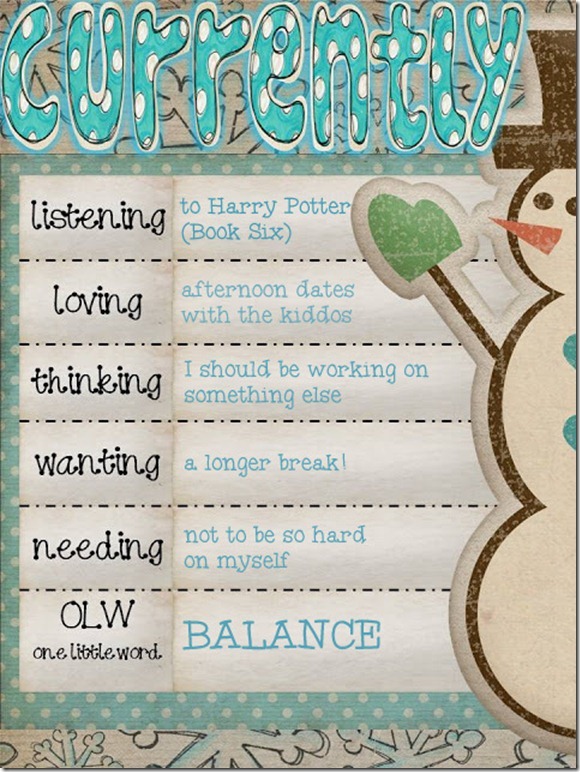 currently
listening
to Harry Potter
(Book Six)
loving
afternoon dates
with the kiddos
thinking
I should be working on
something else
wanting
a longer break!
needing
not to be so hard
on myself
OLW
one little word
BALANCE